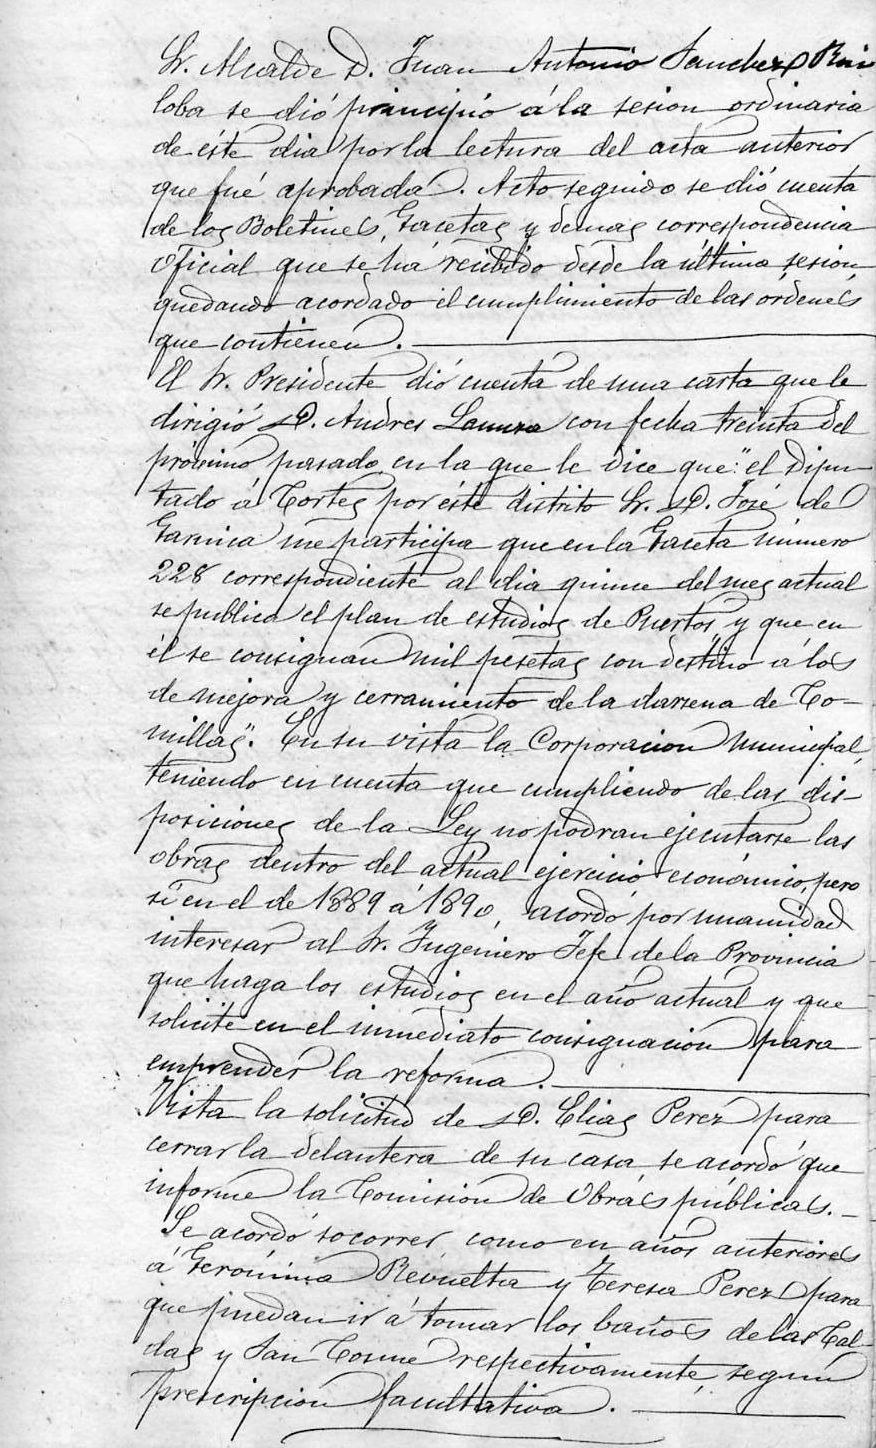 Sr. Alcalde D. Juan Antonio Sanchez Rui
loba se dió principio á la sesion ordinaria
de éste dia por la lectura del acta anterior
que fué aprobada. Acto seguido se dió cuenta
de los Boletines, Gacetas y demas correspondencia
oficial que se ha recibido desde la última sesion
quedando acordado el cumplimiento de las órdenes
que contienen.
El Sr. Presidente dió cuenta de una carta que le
dirigió D. Andres con fecha treinta del
próximo pasado en la que le dice que: "el Dipu
tado á Cortes por éste distrito Sr. D. José de
Garnica me participa que en la Gaceta número
228 correspondiente al dia quince del mes actual
se publica el plan de estudios de Puertos y que en
él se consignan mil pesetas con destino a los
de mejora y cerramiento de la darsena de Co-
millas". En su vista la Corporacion Municipal,
teniendo en cuenta que cumpliendo de las dis-
posiciones de la Ley no podran ejecutarse las
obras dentro del actual ejercicio económico, pero
si en el de 1889 á 1890, acordó por unanimidad
interesar al Sr. Ingeniero Jefe de la Provincia
que haga los estudios en el año actual y que
solicite en el inmediato consignacion para
emprender la reforma.
Vista la solicitud de D. Elias Perez para
cerrar la delantera de su casa se acordó que
informe la Comision de Obras públicas.-
Se acordó socorrer como en años anteriores
á Gerónima Revuelta y Teresa Perez para
que puedan ir á tomar los baños de las Cal-
das y San Cosme respectivamente, segun
prescripcion facultativa.